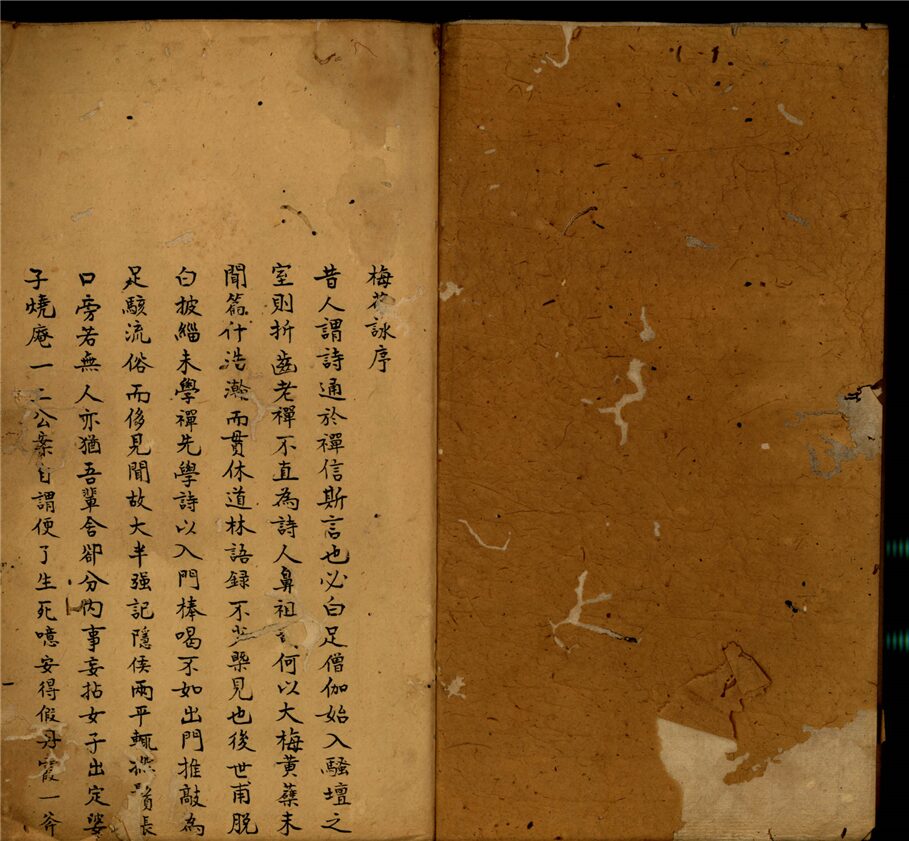 梅花詠序
昔人謂詩通於禪信斯言也必白足僧伽始入騷壇之
室則折齒老禪不直為詩人鼻祖何以大梅黃蘗未
聞篇什浩瀚而貫休道林語録不少槩見也後世甫脫
白披緇未學禪先學詩以入門棒喝不如出門推敲為
足駭流俗而侈見聞故大半强記隱侯兩平輒撚鬚長
口旁若無人亦猶吾輩舍卻分內事妄拈女子出定婆
子燒庵一二公案自謂便了生死噫安得假丹霞一斧